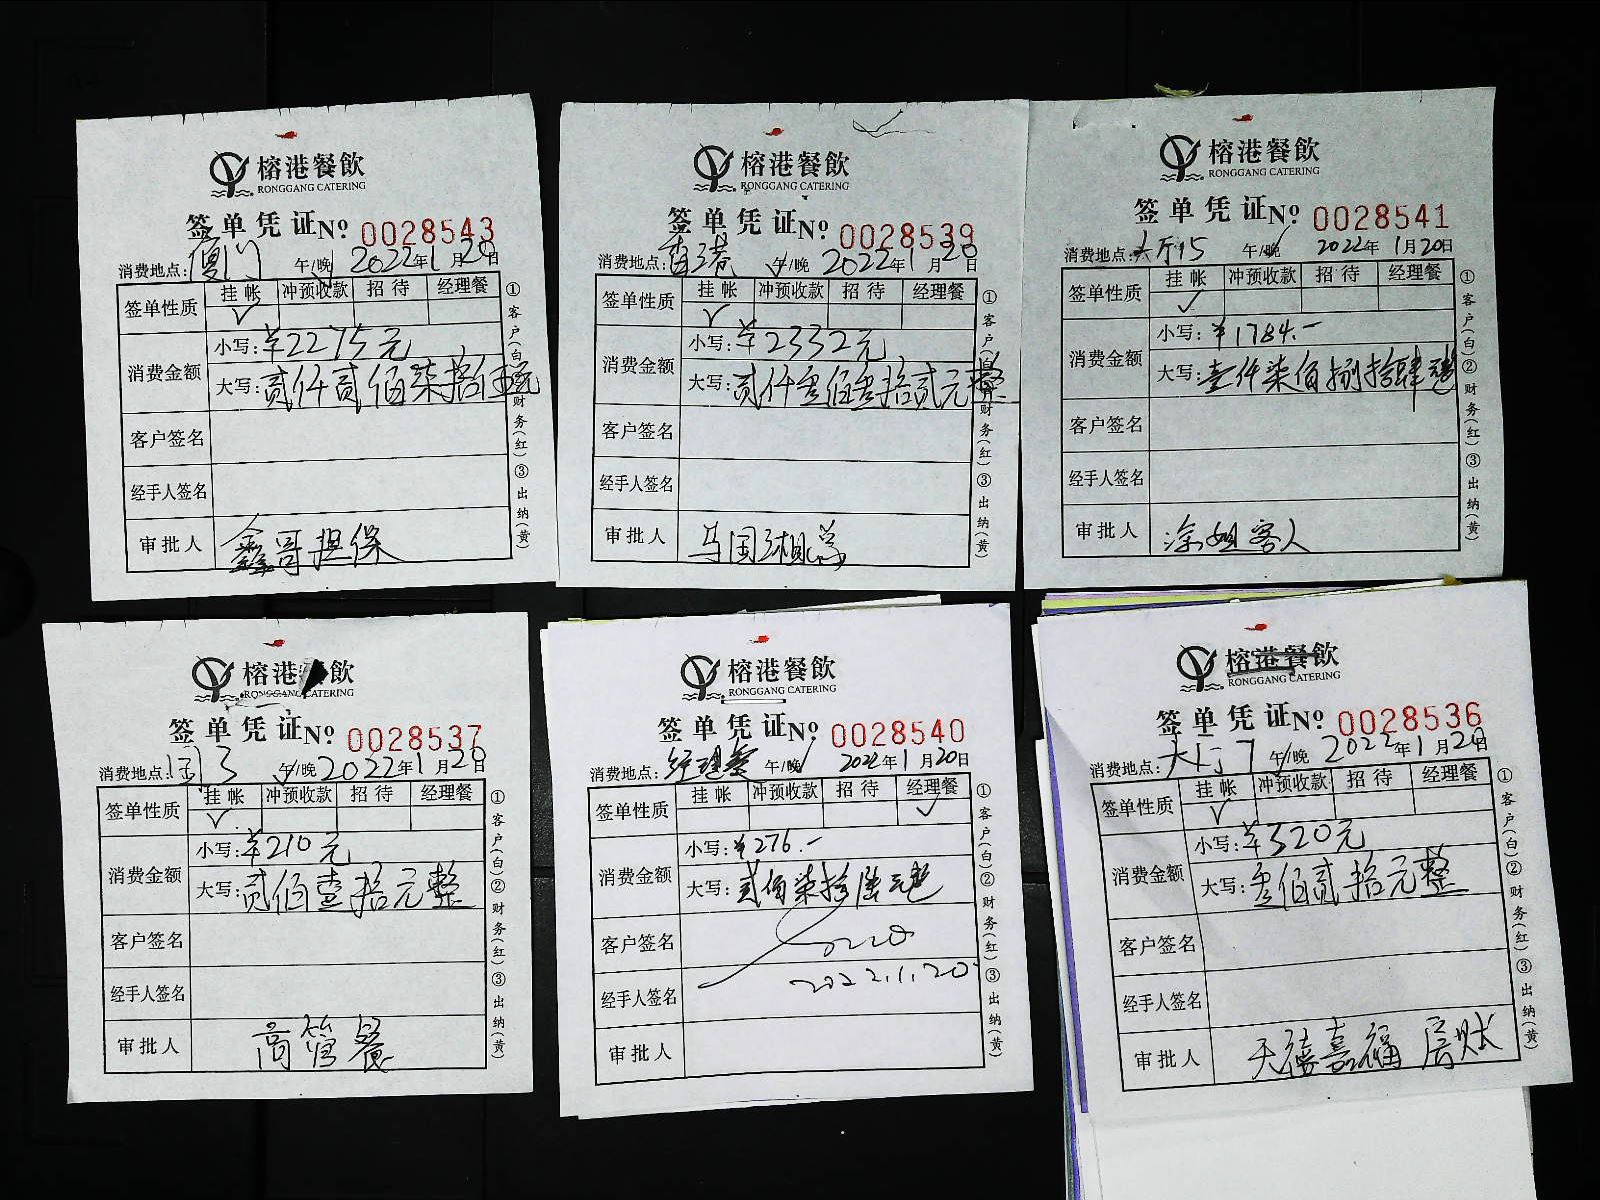 榕港餐飲
RONGGANG CATERING
签单凭证 No 0028543
消费地点：厦门 午/晚 2022年1月20日
签单性质 挂帐 冲预收款 招待 经理餐
✓
消费金额 小写：¥2275元
大写：贰仟贰佰柒拾伍元
客户签名
经手人签名
审批人 鑫哥担保
①客户(白)②财务(红)③出纳(黄)
榕港餐飲
RONGGANG CATERING
签单凭证 No 0028539
消费地点：香港 午/晚 2022年1月20日
签单性质 挂帐 冲预收款 招待 经理餐
✓
消费金额 小写：¥2332元
大写：贰仟叁佰叁拾贰元整
客户签名
经手人签名
审批人 马国湘总
①客户(白)②财务(红)③出纳(黄)
榕港餐飲
RONGGANG CATERING
签单凭证 No 0028541
消费地点：大厅15 午/晚 2022年1月20日
签单性质 挂帐 冲预收款 招待 经理餐
✓
消费金额 小写：¥1784.-
大写：壹仟柒佰捌拾肆元
客户签名
经手人签名
审批人 涂姐客人
①客户(白)②财务(红)③出纳(黄)
榕港餐飲
RONGGANG CATERING
签单凭证 No 0028537
消费地点： 3 午/晚 2022年1月20日
签单性质 挂帐 冲预收款 招待 经理餐
✓
消费金额 小写：¥210元
大写：贰佰壹拾元整
客户签名
经手人签名
审批人 高管餐
①客户(白)②财务(红)③出纳(黄)
榕港餐飲
RONGGANG CATERING
签单凭证 No 0028540
消费地点：经理餐 午/晚 2022年1月20日
签单性质 挂帐 冲预收款 招待 经理餐
✓
消费金额 小写：¥276.-
大写：贰佰柒拾陆元整
客户签名
经手人签名 2022.1.20
审批人
①客户(白)②财务(红)③出纳(黄)
榕港餐飲
RONGGANG CATERING
签单凭证 No 0028536
消费地点：大厅7 午/晚 2022年1月20日
签单性质 挂帐 冲预收款 招待 经理餐
✓
消费金额 小写：¥320元
大写：叁佰贰拾元整
客户签名
经手人签名
审批人 天德嘉福 房账
①客户(白)②财务(红)③出纳(黄)